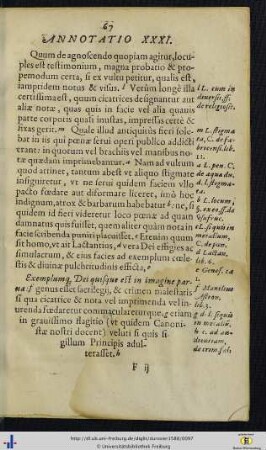 ANNOTATIO XXXI.
Quum de agnoscendo quopiam agitur, locu-
ples est testimonium, magna probatio & pro-
pemodum certa, si ex vultu petitur, qualis est,
iampridem notus & visus. l Verùm longè illa
certissima est, quum cicatrices designantur aut
aliæ notæ, quas quis in facie vel alia quauis
parte corporis quasi inustas, impressas certè &
fixas gerit. m Quale illud antiquitus fieri sole-
bat in iis qui pœnæ seu operi publico addicti
erant: in quorum vel brachiis vel manibus no-
tæ quædam imprimebantur. Nam ad vulcum
quod attinet, tantum abest vt aliquo stigmate
insigniretur, vt ne ferui quidem faciem vllo
pacto fœdare aut difformare liceret, imò hoc
indignum, atrox & barbarum habebatur: ne, si
quidem id fieri videretur loco pœnæ ad quam
damnatus quis fuisset, quemaliter quàm nota in
facie scribenda puniri placuisset. Etenim quum
sit homo, vt ait Lactantius, vera Dei effigies ac
simulacrum, & eius facies ad exemplum cœle-
stis & diuinæ pulchritudinis efficta.
Exemplumq, Dei quisque est in imagine par-
ua genus esset sacrilegij, & crimen maiestatis
si qua cicatrice & nota vel imprimenda vel in-
urenda fœdaretur commacularetúrque, etiam
in grauissimo flagitio (vt quidem Canoni-
stæ nostri docent) veluti si quis si-
gillum Principis adul-
terasset. h
F ij
l L. cum in
diuersis. ff.
de religiosis.
m L. stigma
ta, C. de fa-
bricens. lib.
11.
a L. pen. C.
de aqua du.
d. l. stigma-
ta.
e Genes. 1.a
f Manilius
Astron.
lib. 4.
http://dl.ub.uni-freiburg.de/diglit/durante1588/0097
© Universitätsbibliothek Freiburg